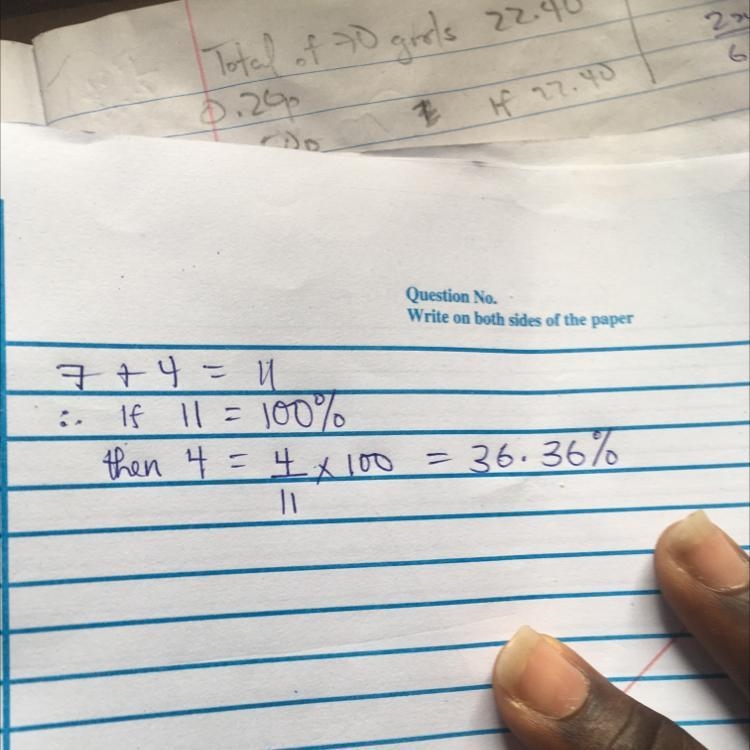 Total of 70 girls 22.40
If 22.40
Question No.
Write on both sides of the paper
7 + 4 = 11
∴ If 11 = 100%
then 4 = 4/11 x 100 = 36.36%